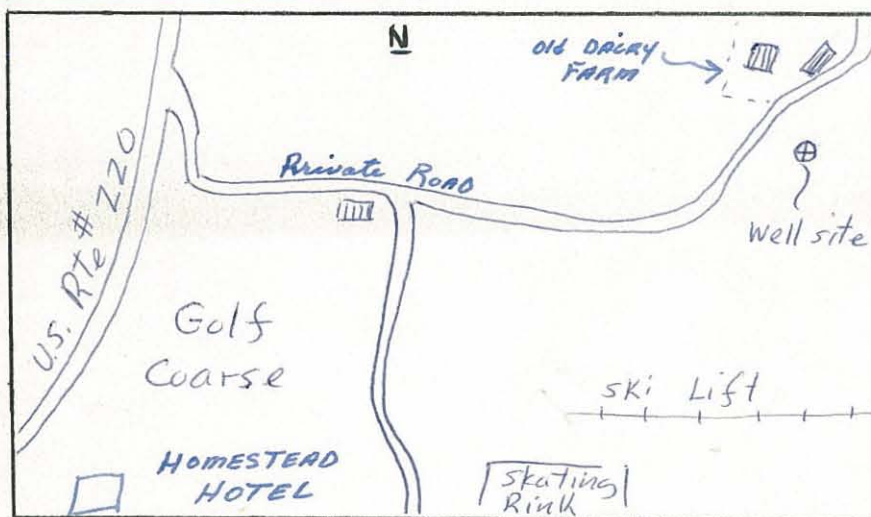 N
Old DAIRY
FARM
Private ROAD
U.S. Rte # 220
Well site
Golf
Coarse
Ski Lift
HOMESTEAD
HOTEL
Skating
Rink